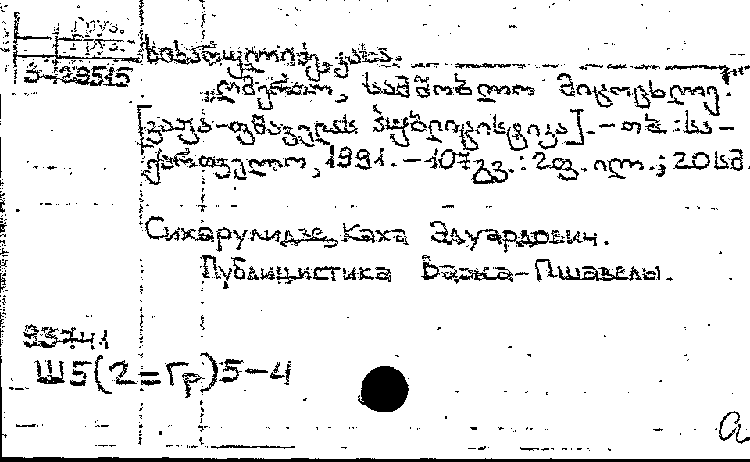 Груз.
Груз.
3-39515
სიხარულიძე, კახა.
„ღმერთო, სამშობლო მიცოცხლე!"
[ვაჟა-ფშაველას პუბლიცისტიკა]. – თბ. : სა-
ქართველო, 1991. – 107 გვ. : 2 ფ. ილ. ; 20 სმ.
Сихарулидзе, Каха Эдуардович.
Публицистика Важа-Пшавелы.
93741
Ш5(2=Гр)5-4